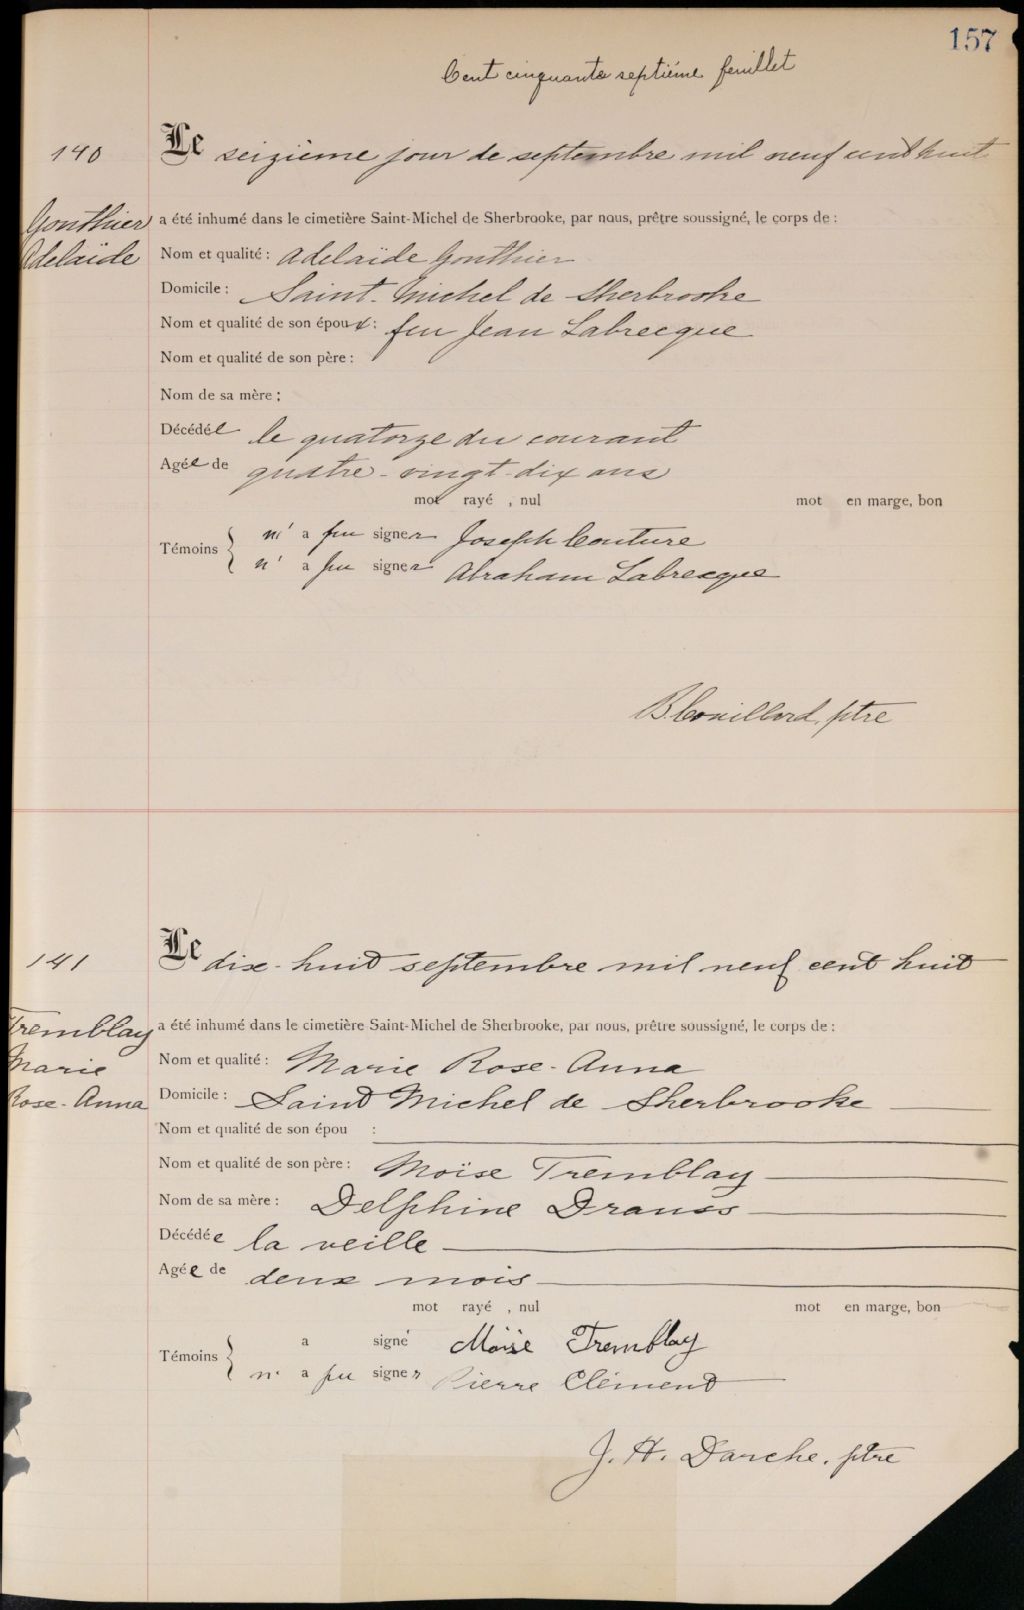 157
Cent cinquante septième feuillet
140
Le seizième jour de septembre mil neuf cent huit
Gonthier
Adelaïde
a été inhumé dans le cimetière Saint-Michel de Sherbrooke, par nous, prêtre soussigné, le corps de :
Nom et qualité : Adelaïde Gonthier
Domicile : Saint-Michel de Sherbrooke
Nom et qualité de son époux : feu Jean Labrecque
Nom et qualité de son père :
Nom de sa mère :
Décédée le quatorze du courant
Agée de quatre-vingt-dix ans
mot rayé , nul mot en marge, bon
Témoins { n' a pu signer Joseph Couture
n' a pu signer Abraham Labrecque
B. Couillard, ptre
141
Le dix-huit septembre mil neuf cent huit
Tremblay
Marie
Rose-Anna
a été inhumé dans le cimetière Saint-Michel de Sherbrooke, par nous, prêtre soussigné, le corps de :
Nom et qualité : Marie Rose-Anna
Domicile : Saint Michel de Sherbrooke
Nom et qualité de son épou :
Nom et qualité de son père : Moïse Tremblay
Nom de sa mère : Delphine
Décédée la veille
Agée de deux mois
mot rayé , nul mot en marge, bon
Témoins { a signé Moïse Tremblay
n' a pu signer Pierre Clément
J. H. Darche, ptre